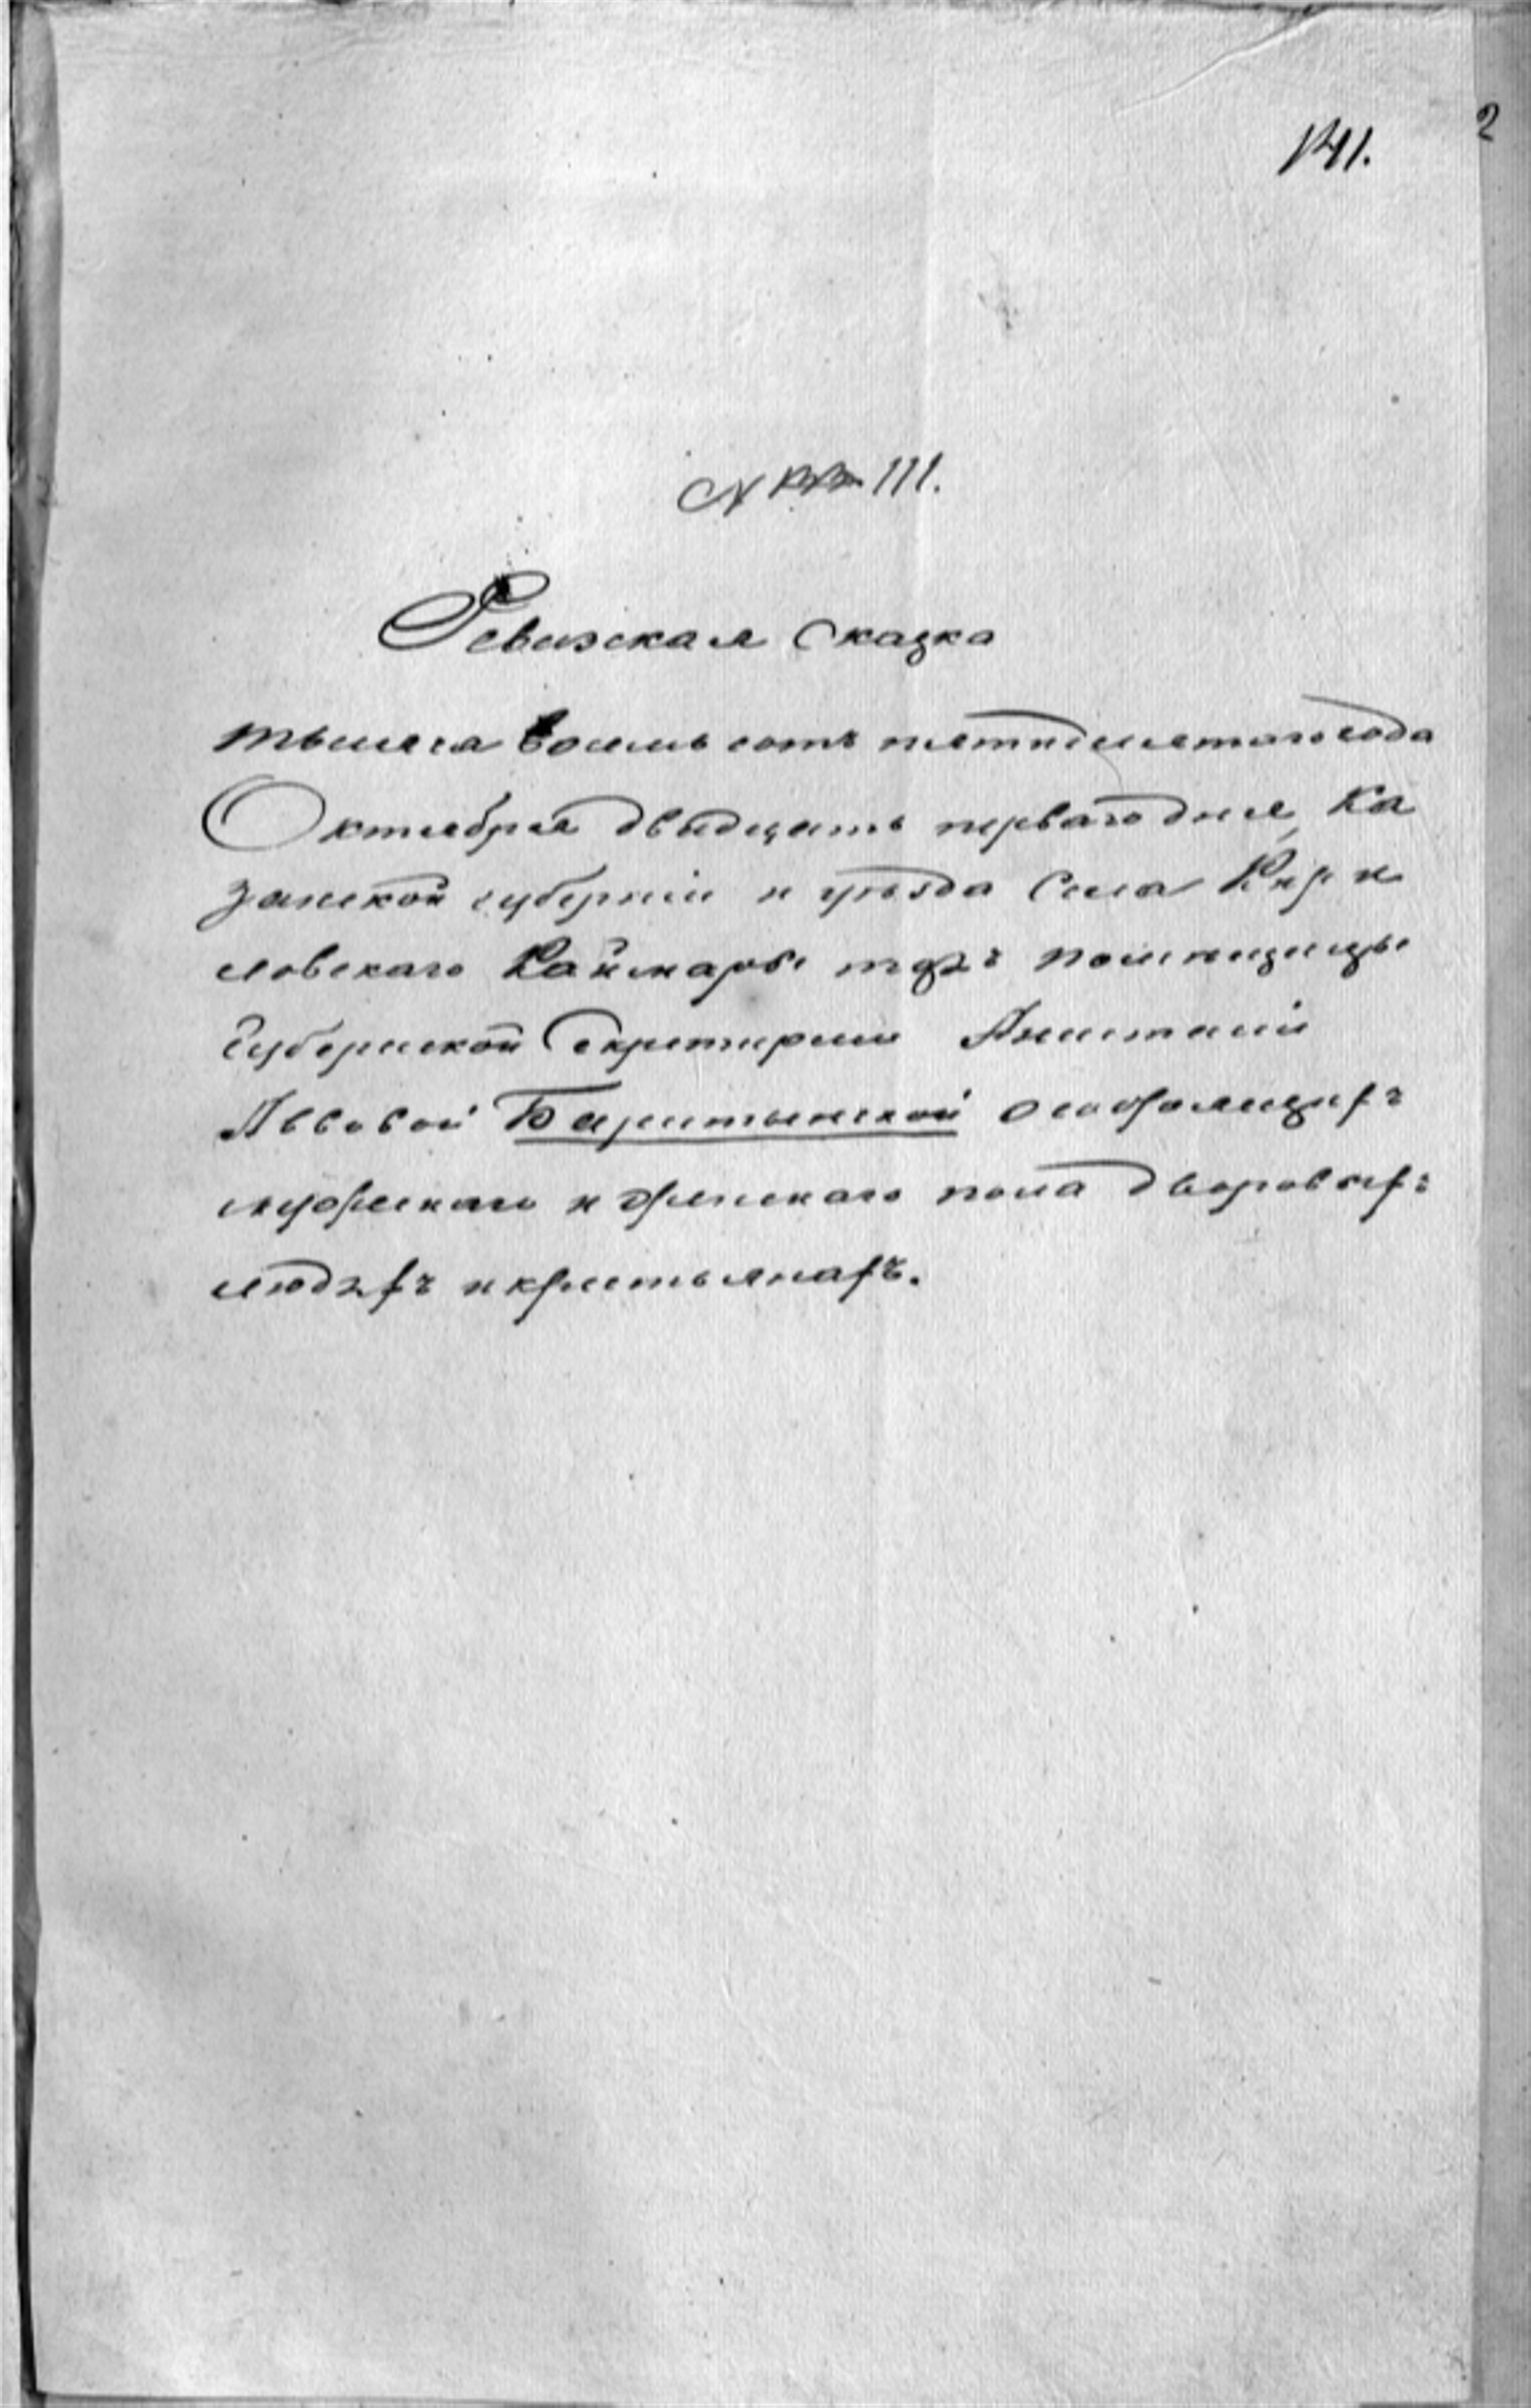 141.
2
N 111.
Ревизская Сказка
тысяча восемь сотъ пятидесятаго года
Октября двадцать перваго дня, Ка
занской губерніи и уѣзда Села Кири
ловскаго Каймары тожъ помещицы
Губернской Секретарши Анастасіи
Львовой Баратынской о состоящихъ
мужескаго и женскаго пола дворовыхъ
людяхъ и крестьянахъ.